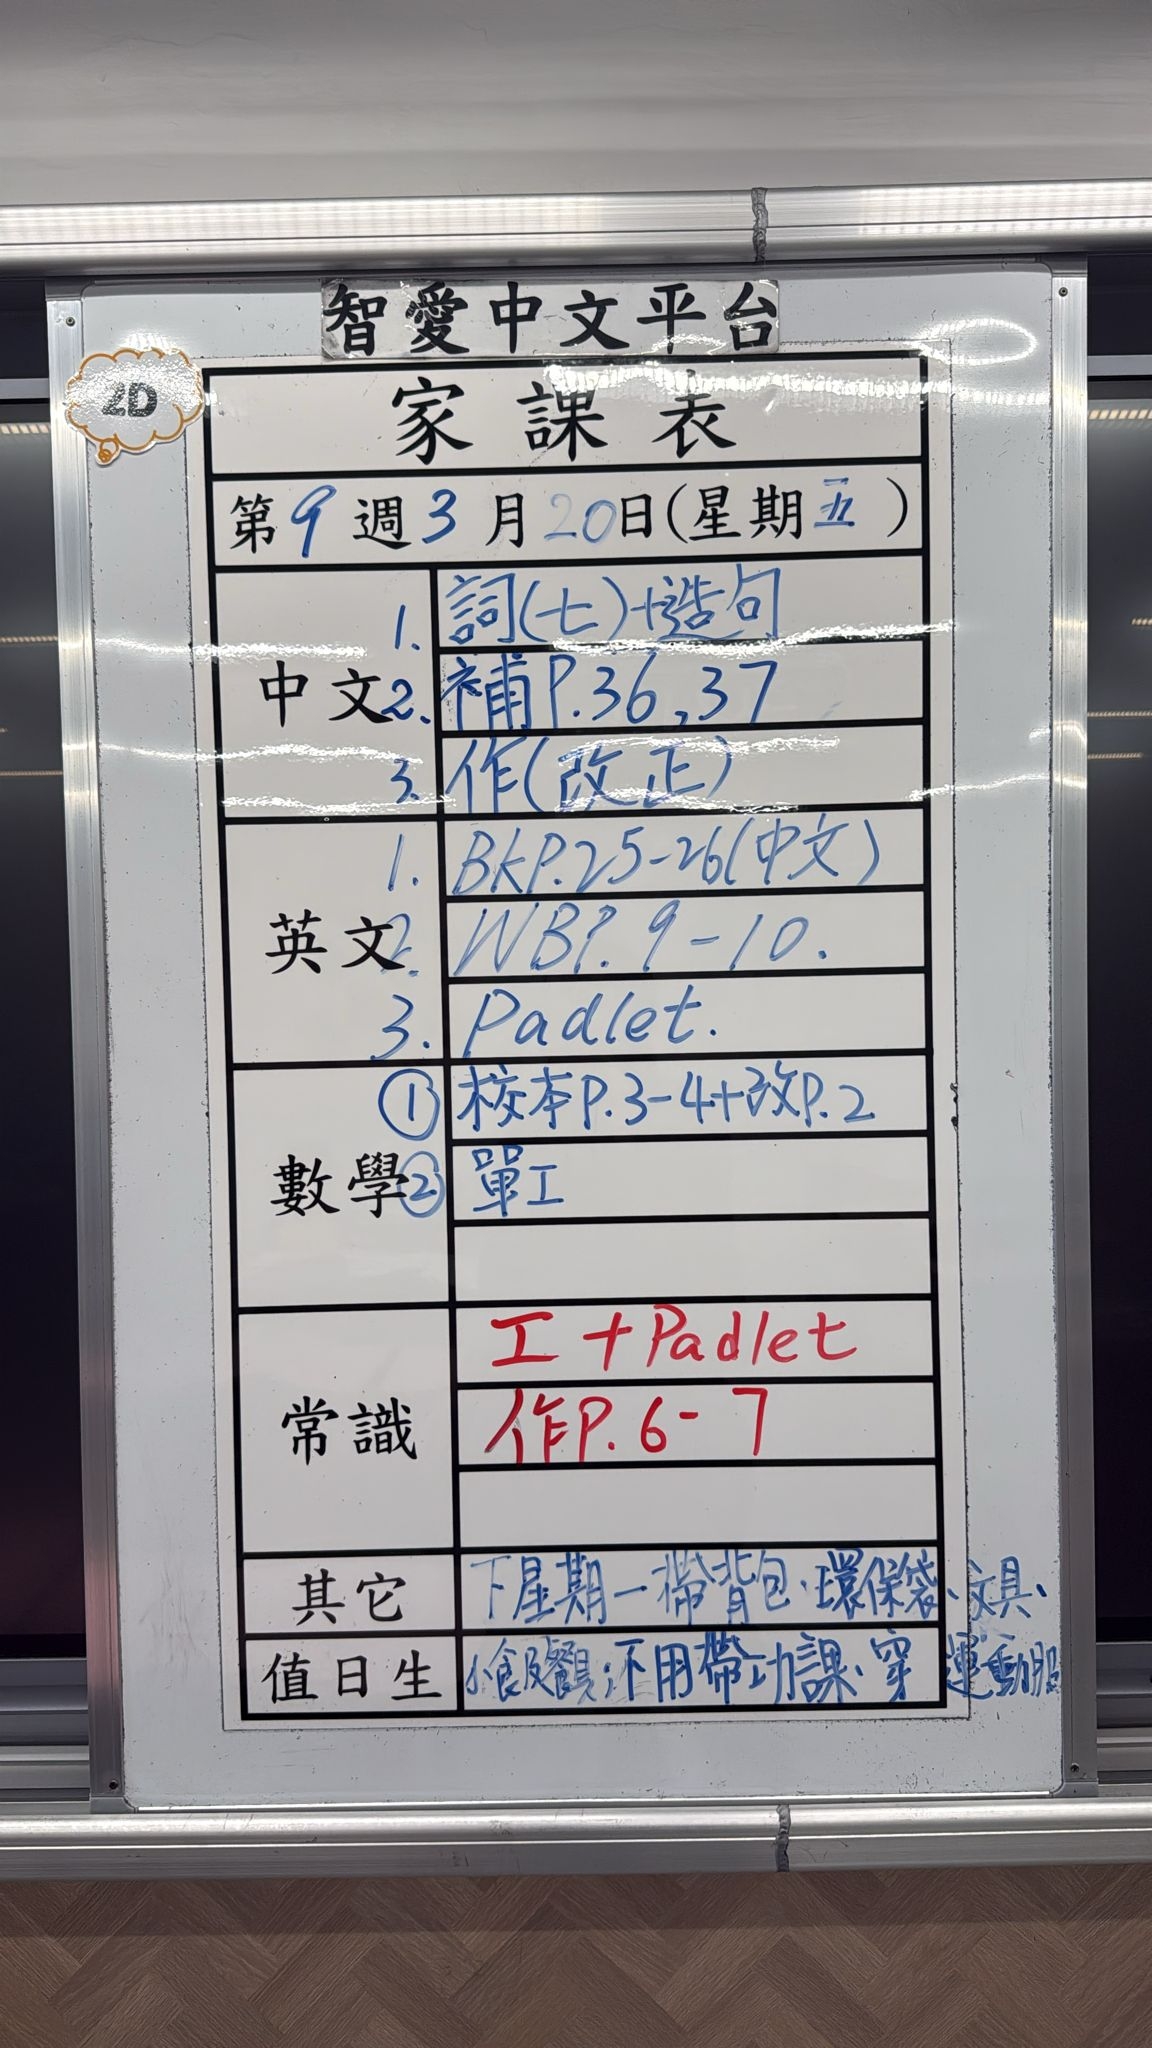 智愛中文平台
2D
家課表
第9週3月20日(星期五)
中文
1. 詞(七)+造句
2. 補P.36,37
3. 作(改正)
英文
1. BkP.25-26(中文)
2. WBP.9-10.
3. Padlet.
數學
① 校本P.3-4+改P.2
② 單工
常識
工+Padlet
作P.6-7
其它
下星期一帶背包、環保袋、文具、
值日生
小食及餐具;不用帶功課、穿運動服